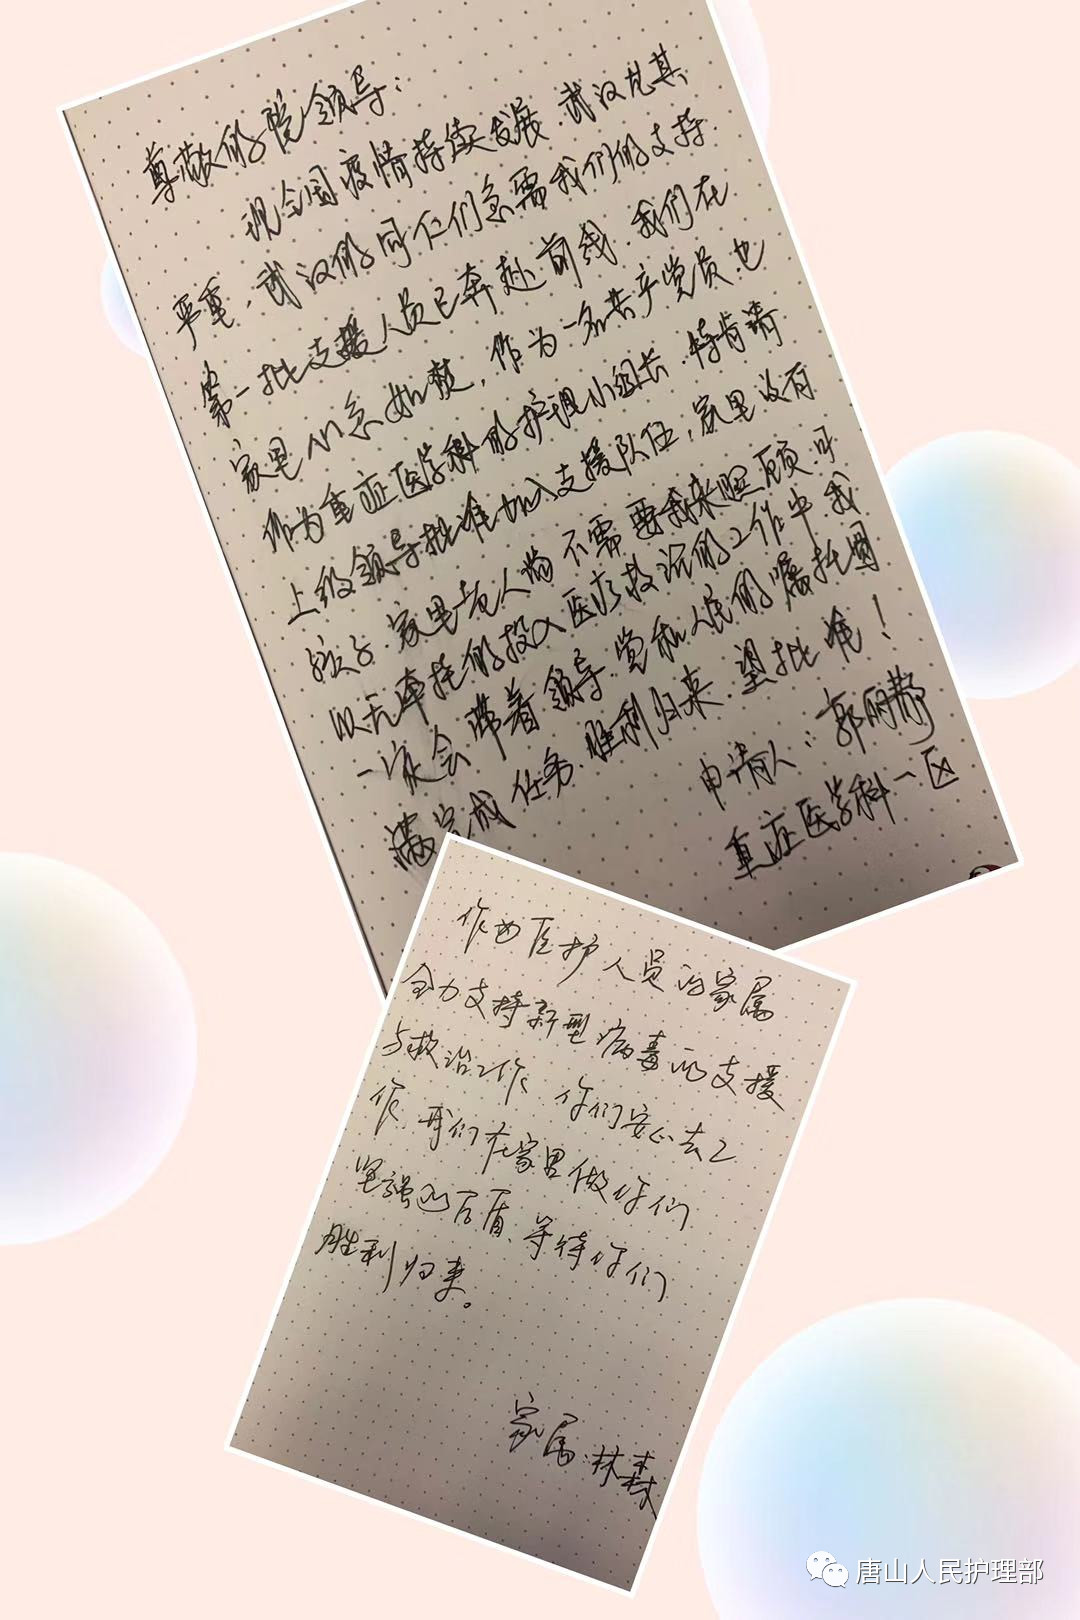 尊敬的院领导：
现全国疫情持续发展，武汉尤其
严重，武汉的同仁们急需我们的支持
第一批支援人员已奔赴前线，我们在
家里心系如焚，作为一名共产党员也
作为重症医学科的护理小组长，特肯请
上级领导批准加入支援队伍，家里没有
孩子，家里老人尚不需要我来照顾可
以无牵挂的投入医疗救治的工作中，我
一定会带着领导、党和人民的嘱托圆
满完成任务，胜利归来，望批准！
申请人：郭丽静
重症医学科一区
作为医护人员的家属
全力支持新型病毒的支援
与救治工作，你们安心去工
作，我们在家里做你们
坚强的后盾，等待你们
胜利归来。
家属：林森
唐山人民护理部